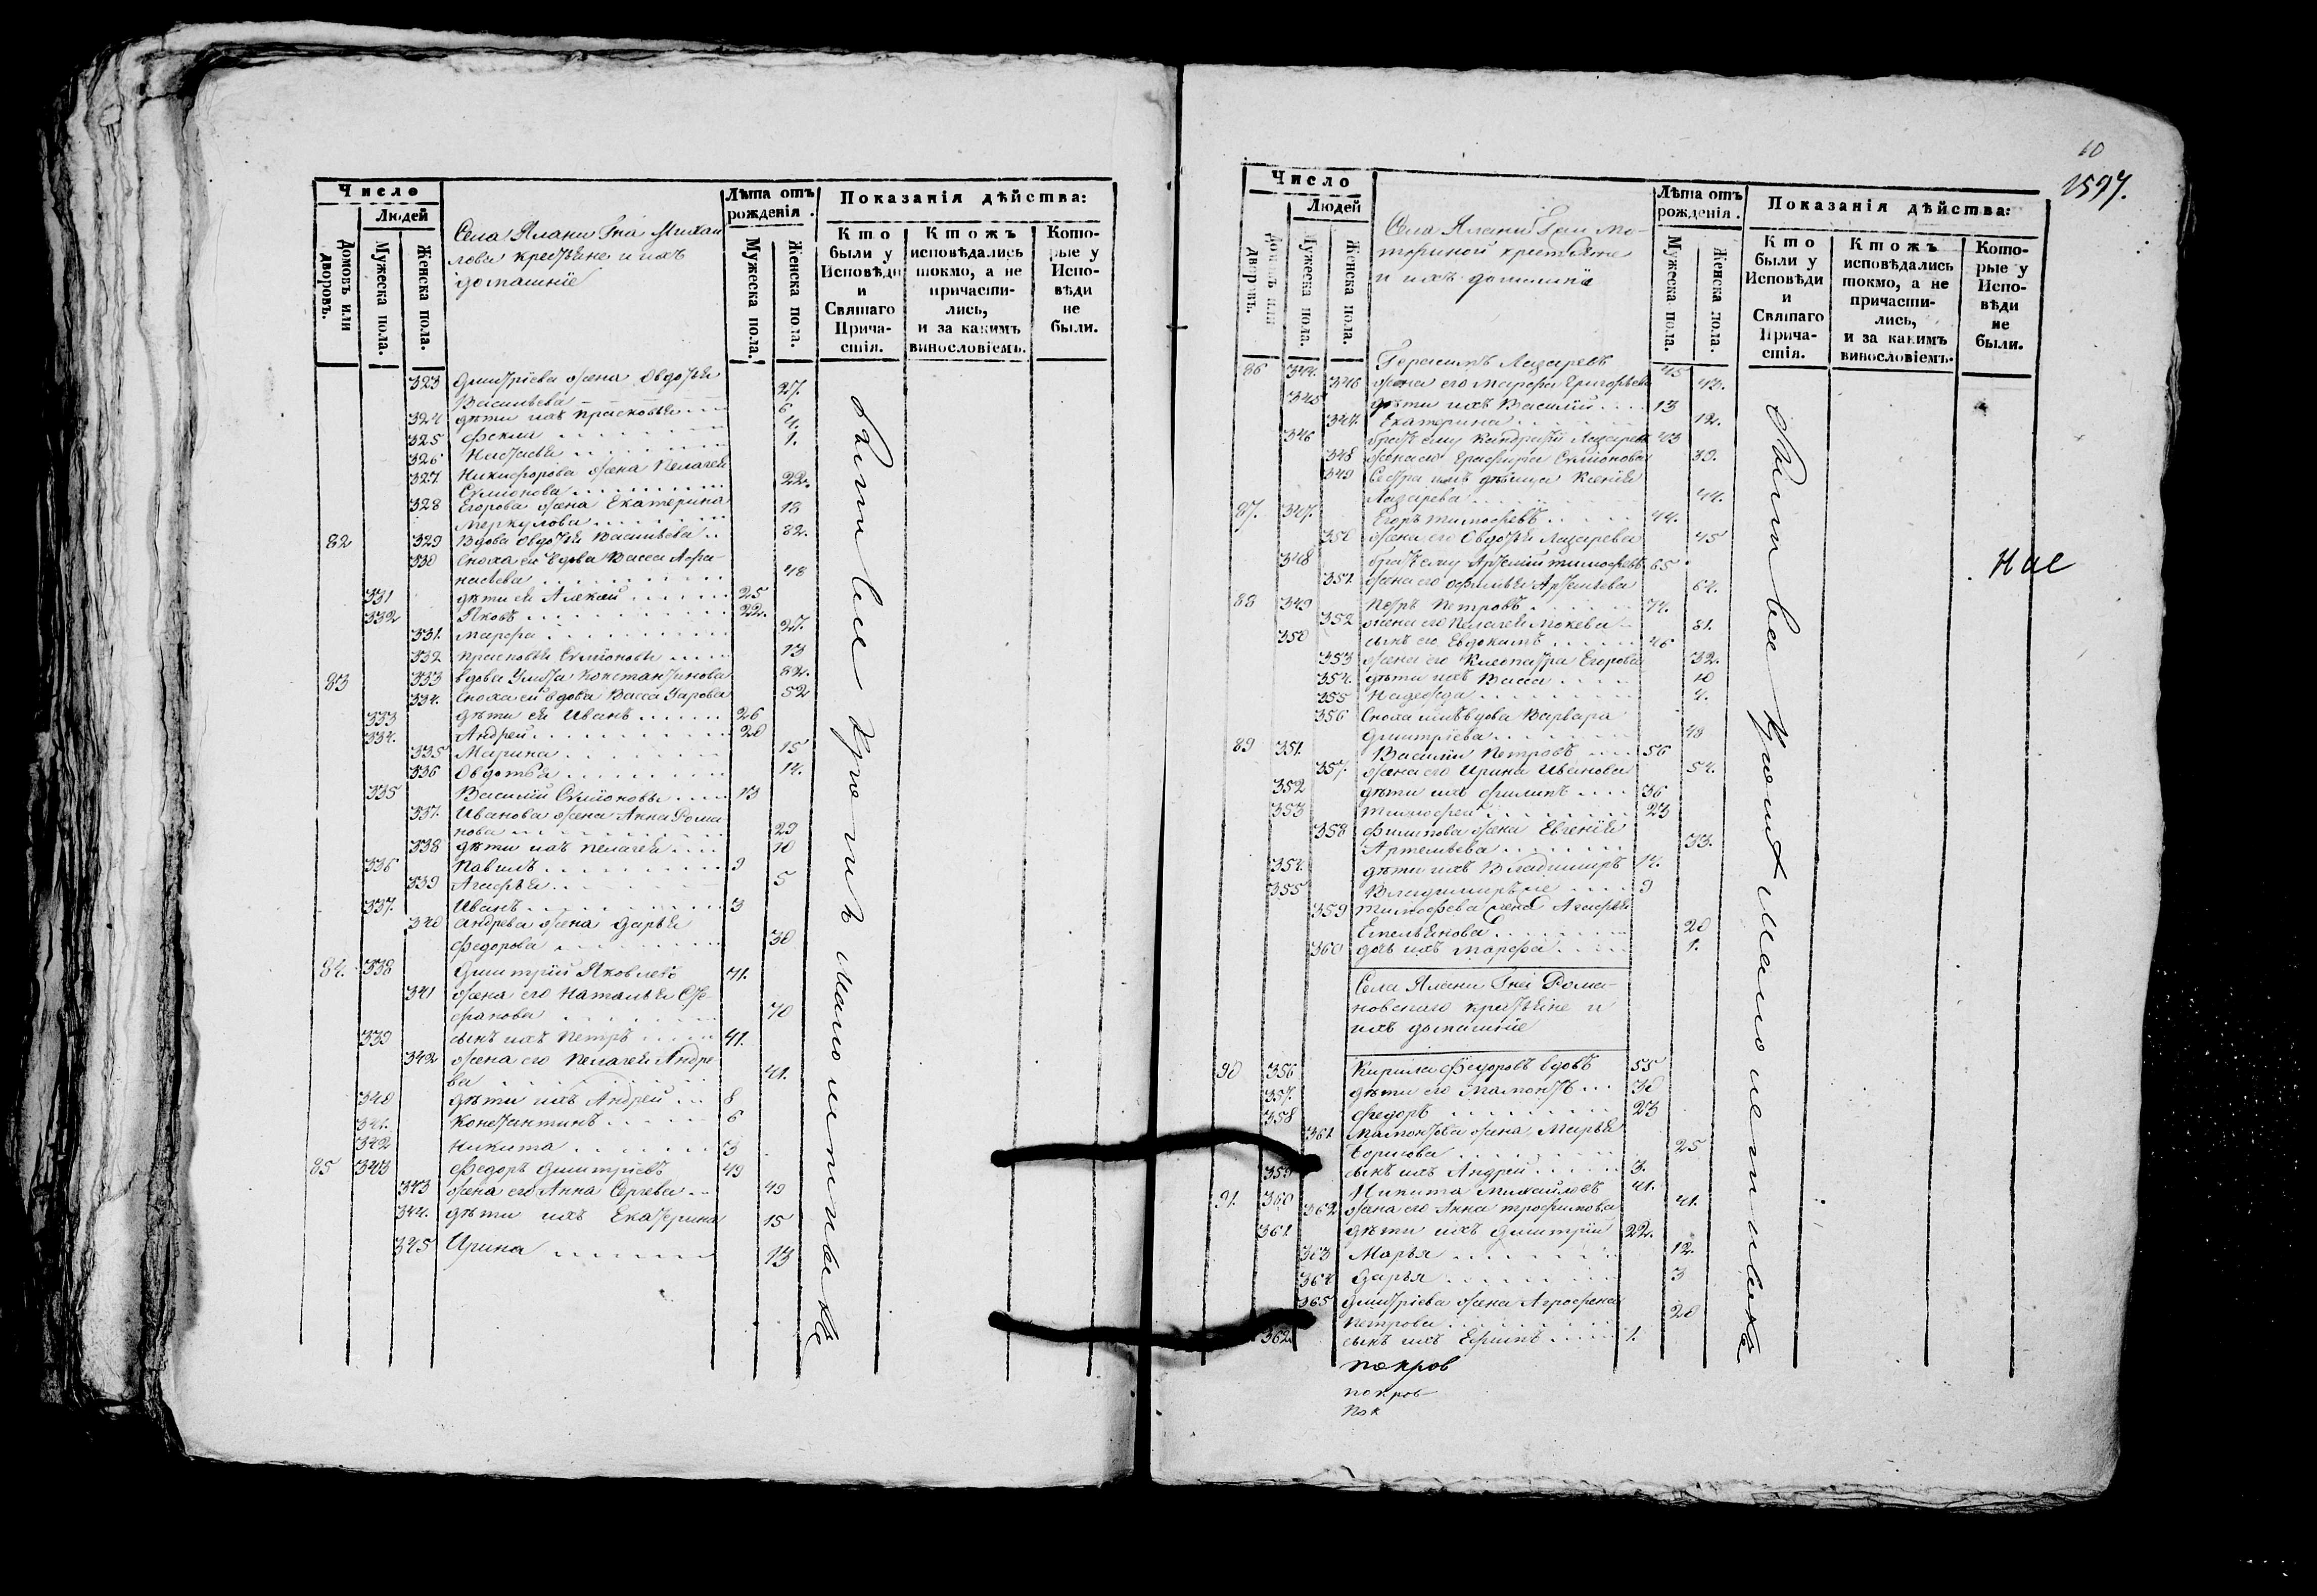 Число
Людей
Домовъ или дворовъ.
Мужеска пола.
Женска пола.
Села Ялани Гна Михаи
лова крестьяне и ихъ
домашніе
Лѣта отъ рожденія.
Мужеска пола.
Женска пола.
Показанія дѣйства:
Кто были у Исповѣди и Святаго Причастія.
Ктожъ исповѣдались токмо, а не причастились, и за какимъ винословіемъ.
Которые у Исповѣди не были.
323 Дмитріева жена Овдотья
Васильева 27.
324 дѣти ихъ Прасковья 6
325 Фекла 4.
326 Настасья 1.
327 Никифорова жена Пелагея
Семіонова 22.
328 Егорова жена Екатерина
Меркулова 18
82 329 Вдова Овдотья Васильева 82.
330 Сноха ея вдова Васса Афа-
насьева 48
331 дѣти ея Алексѣй 25
332 Яковъ 22.
331. Марфа 27.
332 Прасковья Семіоновы 13
83 333 вдова Улита Константинова 82.
334. Сноха ея вдова Васса Уарова 52
333 дѣти ея Иванъ 26
334. Андрей 20
335 Марина 15
336 Овдотья 14.
335 Василій Семіоновы 13
337. Иванова жена Анна Рома
нова 29
338 дѣти ихъ Пелагея 10
336 Павилъ 9
339 Агафья 5
337. Иванъ 3
340 Андрева жена Дарья
Федорова 30
84. 338 Дмитрій Яковлевъ 71.
341 жена его Наталья Сте-
фанова 70
339 сынъ ихъ Петръ 41.
342 жена его Пелагея Андре
ва 41.
340 дѣти ихъ Андрей 8
341. Константинъ 6
342 Никита 3
85 343 Федоръ Дмитріевъ 49
343 жена его Анна Сергева 49
344. дѣти ихъ Екатерина 15
345 Ирина 13
10
1597.
Число
Людей
Домовъ или дворовъ.
Мужеска пола.
Женска пола.
Села Ялани Гжи Мо-
ториной крестьяне
и ихъ домашніе
Лѣта отъ рожденія.
Мужеска пола.
Женска пола.
Показанія дѣйства:
Кто были у Исповѣди и Святаго Причастія.
Ктожъ исповѣдались токмо, а не причастились, и за какимъ винословіемъ.
Которые у Исповѣди не были.
86 344. Герасимъ Лазаревъ 45
346 жена его Марфа Григорьева 42.
345 дѣти ихъ Василій 13
347. Екатерина 12.
346 братъ ему Кандратій Лазаревъ 43
348 жена его Семіонова 39.
349 Сестра имъ дѣвица Ксенія
Лазарева 44.
87. 347. Егоръ Тимофеевъ 44.
350 жена его Овдотья Лазарева 45
348 братъ ему Арсеній Тимофеевъ 65
351. жена его Арсеньева 64.
88 349 Петръ Петровъ 74.
352 жена его Пелагея Мокева 81.
350 сынъ его Евдокимъ 46
353 жена его Клеопатра Егорова 32.
354. дѣти ихъ Васса 10
355 Надежда 4.
356 Сноха имъ вдова Варвара
Дмитріева 48
89 351. Василій Петровъ 56
357. жена его Ирина Иванова 54.
352 дѣти ихъ Филипъ 36
353 Тимофей 23
358 Филипова жена Евгенія
Артемьева 33.
354. дѣти ихъ Владимиръ 14.
355 Владимиръ же 9
359 Тимофеева жена Агафья
Емельянова 20
360 дочь ихъ Марфа 1.
Села Ялани Гна Рома-
новскаго крестьяне и
ихъ домашніе
90 356 Кирила Федоровъ вдовъ 55
357. дѣти его Мамонтъ 30
358 Федоръ 23
361 Мамонтова жена Марья
Борисова 25
359 сынъ ихъ Андрей 3.
91. 360 Никита Михайловъ 41.
362 жена его Анна Трофимова 41.
361. дѣти ихъ Дмитрій 22.
363 Марья 12.
364 Дарья 3
365 Дмитріева жена Агрофена
Петрова 20
362 сынъ ихъ Ефимъ 1.
покров
покров
Пок